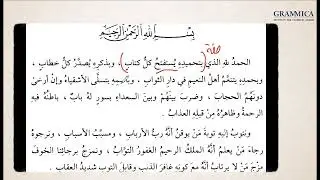 GRAMMICA
بِسْمِ اللهِ الرَّحْمٰنِ الرَّحِيْمِ
صلة
الحمدُ للهِ الذي (بتحميدِهِ يُستفتحُ كلُّ كتابٍ)، وبذكرِهِ يُصدَّرُ كلُّ خطابٍ،
وبحمدِهِ يتنعَّمُ أهلُ النعيمِ في دارِ الثوابِ، وباسمِهِ يتسلَّى الأشقياءُ وإنْ أُرخيَ
دونَهُمُ الحجابُ، وضُرِبَ بينَهُمْ وبينَ السعداءِ بسورٍ لهُ بابٌ، باطنُهُ فيهِ
الرحمةُ وظاهرُهُ مِنْ قِبلِهِ العذابُ.
ونتوبُ إليهِ توبةَ مَنْ يوقنُ أنَّهُ ربُّ الأربابِ، ومسبِّبُ الأسبابِ، ونرجوهُ
رجاءَ مَنْ يعلمُ أنَّهُ الملكُ الرحيمُ الغفورُ التوَّابُ، ونمزجُ برجائِنا الخوفَ
مزجَ مَنْ لا يرتابُ أنَّهُ معَ كونِهِ غافرَ الذنبِ وقابلَ التوبِ شديدُ العقابِ.